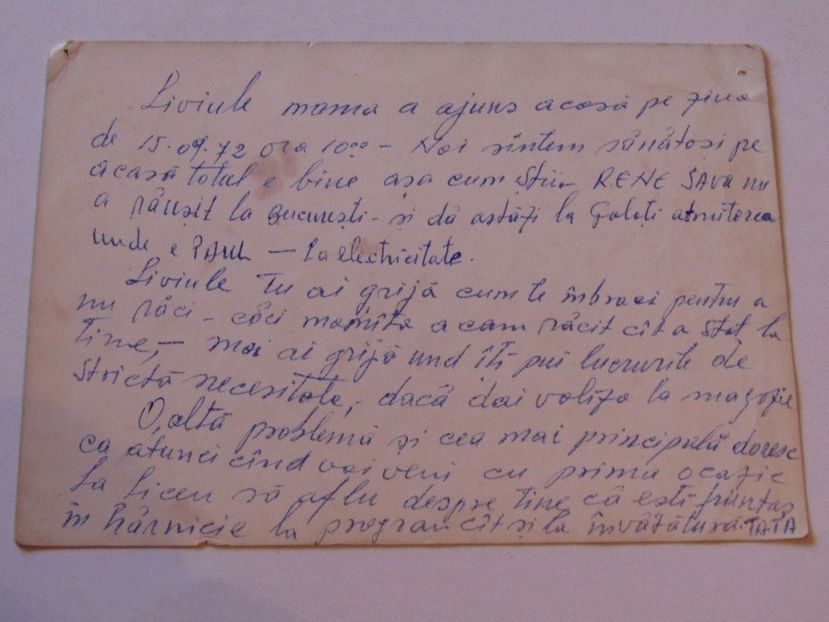 Liviule mama a ajuns acasă pe ziua
de 15.09.72 ora 10⁰⁰ - Noi sîntem sănătoși pe
acasă totul e bine așa cum știi RENE SAVA nu
a răușit la București - și dă astăzi la Galați atmiterea
unde e PAUL — la electricitate.
Liviule Tu ai grijă cum te îmbraci pentru a
nu răci - căci mămița a cam răcit cît a stat la
tine, - mai ai grijă und îți pui lucrurile de
strictă necesitate, dacă dai valiza la magazie
O, altă problemă și cea mai principală doresc
ca atunci cînd voi veni cu prima ocazie
la liceu să aflu despre tine că ești fruntaș
în hărnicie la program cît și la învățătură. TATA